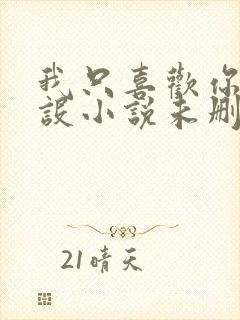 我只喜歡你
設小說未刪
21晴天